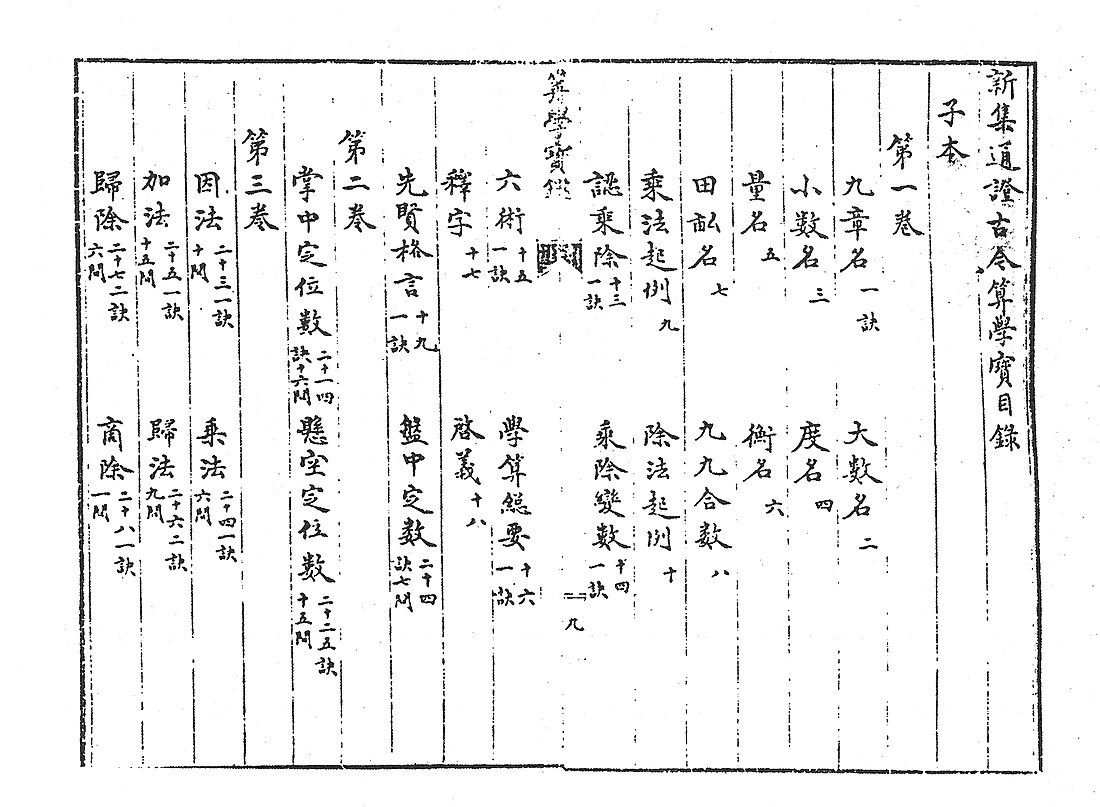 新集通證古今算學寶目錄
子本
第一卷
九章名 一訣 大數名 二
小數名 三 度名 四
量名 五 衡名 六
田畝名 七 九九合數 八
乘法起例 九 除法起例 十
認乘除 十三一訣 乘除變數 十四一訣
算學寶鑑 二九
六術 十五一訣 學算緫要 十六一訣
釋字 十七 啓義 十八
先賢格言 十九一訣 盤中定數 二十四訣七問
第二卷
掌中定位數 二十一四訣十六問 懸空定位數 二十二五訣十五問
第三卷
因法 二十三一訣十問 乘法 二十四一訣六問
加法 二十五一訣十五問 歸法 二十六二訣九問
歸除 二十七二訣六問 商除 二十八一訣一問